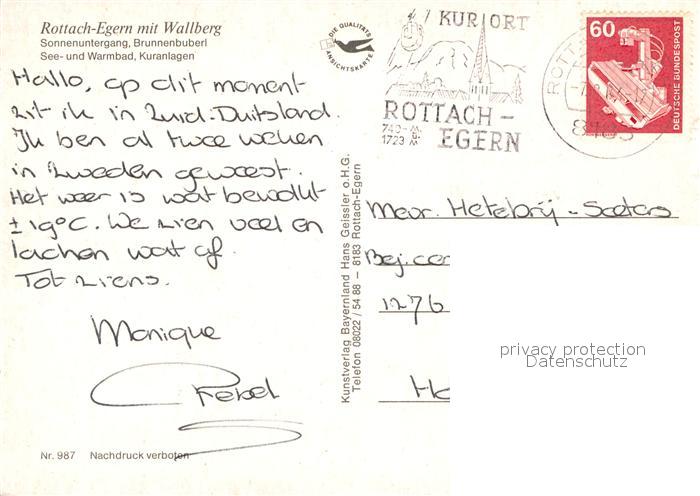 Rottach-Egern mit Wallberg
Sonnenuntergang, Brunnenbuberl
See- und Warmbad, Kuranlagen
Hallo, op dit moment
zit ik in Zuid-Duitsland.
Ik ben al twee weken
in Zweden geweest.
Het weer is wat bewolkt
± 19°C. We zien veel en
lachen wat af.
Tot ziens.
Monique
Nr. 987 Nachdruck verboten
DIE QUALITÄTS
ANSICHTSKARTE
KURORT
ROTTACH-
EGERN
740-M
1723 M
60
DEUTSCHE BUNDESPOST
8183
Kunstverlag Bayernland Hans Geissler o.H.G.
Telefon 08022/54 88 – 8183 Rottach-Egern
Mevr. Hetebrij -
Bej. cen
1276
privacy protection
Datenschutz